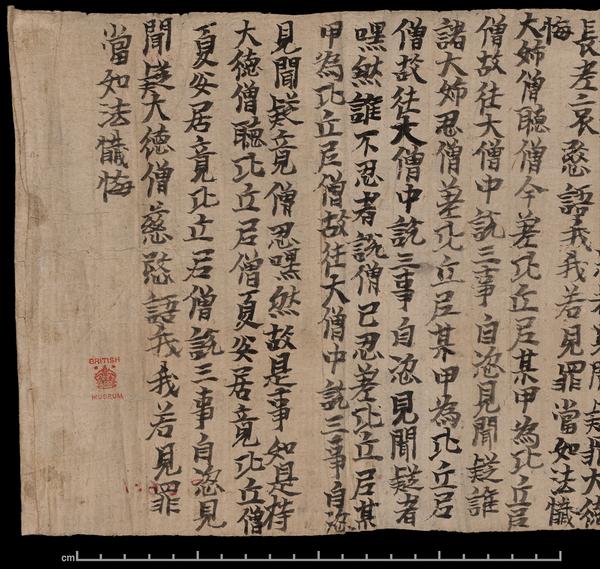 長老亦哀愍語我我若見罪當如法懺
悔
大姉僧聽僧今差比丘尼某甲為比丘尼
僧故往大僧中說三事自恣見聞疑誰
諸大姉忍僧差比丘尼某甲為比丘尼
僧故往大僧中說三事自恣見聞疑者
嘿然誰不忍者說僧已忍差比丘尼某
甲為比丘尼僧故往大僧中說三事自恣
見聞疑竟僧忍嘿然故是事如是持
大德僧聽比丘尼僧夏安居竟比丘僧
夏安居竟比丘尼僧說三事自恣見
聞疑大德僧慈愍語我我若見罪
當如法懺悔
BRITISH
MUSEUM
cm